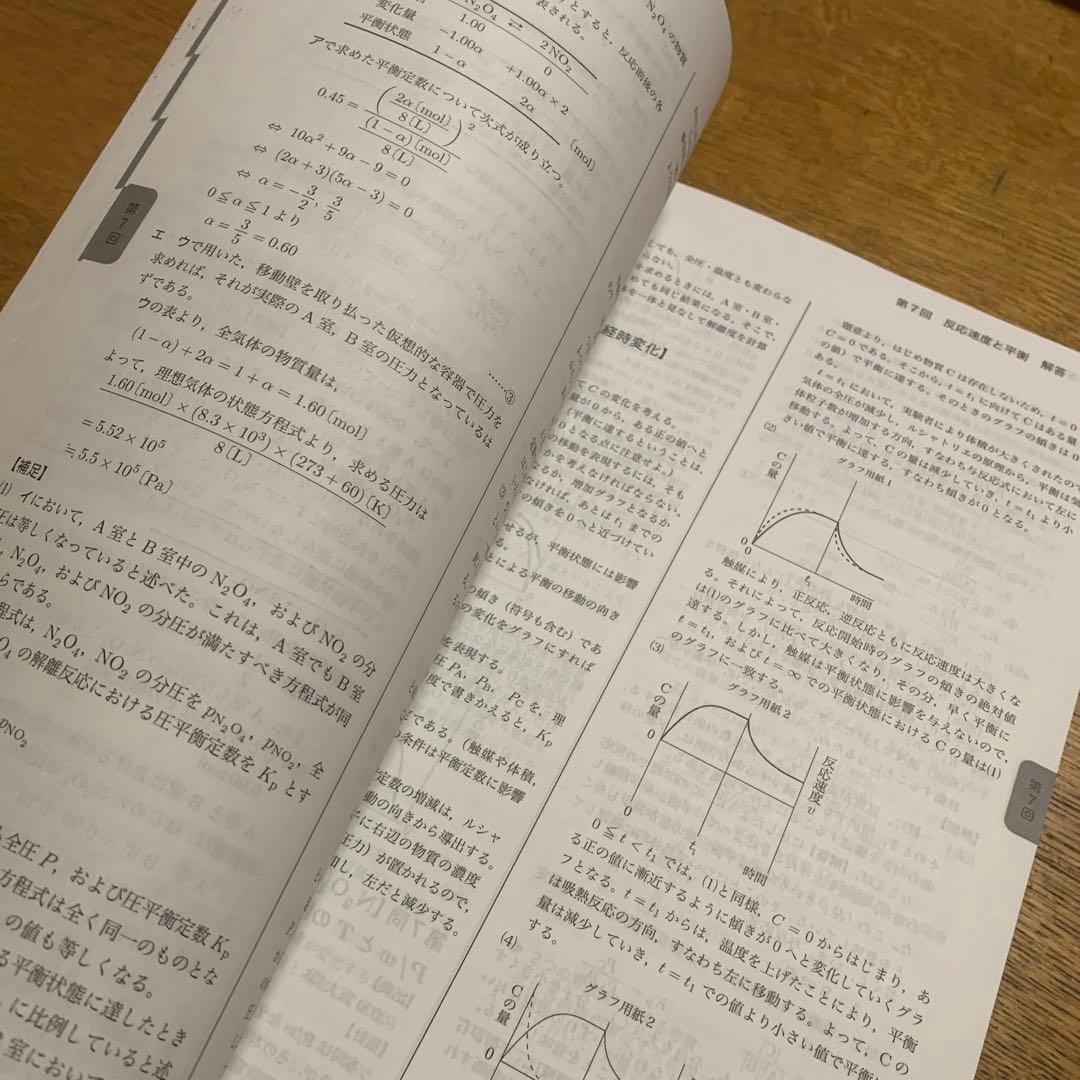 N₂O₄の物質
とすると、反応前後の各
表される。
N₂O₄ ⇄ 2NO₂
1.00 0
変化量 −1.00α +1.00α×2
平衡状態 1−α 2α (mol)
アで求めた平衡定数について次式が成り立つ。
0.45=(2α[mol]/8[L])²/((1−α)[mol]/8[L])
⇔ 10α²+9α−9=0
⇔ (2α+3)(5α−3)=0
⇔ α=−3/2, 3/5
0≦α≦1より
α=3/5=0.60 ……③
エ ウで用いた,移動壁を取り払った仮想的な容器で圧力を
求めれば,それが実際のA室,B室の圧力となっているは
ずである。
ウの表より,全気体の物質量は,
(1−α)+2α=1+α=1.60[mol]
よって,理想気体の状態方程式より,求める圧力は
1.60[mol]×(8.3×10³)×(273+60)[K]/8[L]
=5.52×10⁵
≒5.5×10⁵[Pa]
【補足】
(1) イにおいて,A室とB室中のN₂O₄,およびNO₂の分
圧は等しくなっていると述べた。これは,A室でもB室
,N₂O₄,およびNO₂の分圧が満たすべき方程式が同
らである。
程式は,N₂O₄,NO₂の分圧をpN₂O₄,pNO₂,全
O₄の解離反応における圧平衡定数をKpとす
pNO₂
全圧P,および圧平衡定数Kp
方程式は全く同一のものとな
の値も等しくなる。
る平衡状態に達したとき
に比例していると述
室において
第7回
しても,全圧・温度とも変わらな
らない。
を求めるときには,A室・B室・
めても同じ結果になる。そこで,
体を一体と見なして解離度を計算
経時変化】
てCの変化を考える。
量が0から,ある正の値へと
(平衡に達するということは,
0となる点に注意せよ。)
の移動を表現するには,そも
かを考えなければならない。
なるか,増加グラフとなるか
なければ,あとはt₁までの
の傾きを0へと近づけてい
せるが,平衡状態には影響
る。
とによる平衡の移動の向き
の傾き(符号も含む)であ
の変化をグラフにすれば
を表現する。
圧PA,PB,PCを,理
度で書きかえると,Kp
だである。(触媒や体積,
の条件は平衡定数に影響
定数の増減は,ルシャ
動の向きから導出する。
子に右辺の物質の濃度
圧力)が置かれるので,
加し,左だと減少する。
第7回 反応速度と平衡 解答
題意より,はじめ物質Cは存在しないため,t=0
C=0である。そこから,t=t₁に向けてCはある量
の値)で平衡に達する。そのときのグラフの傾きは0
ある。
t=t₁において,実験者により体積が大きくされたので
気体の全圧が減少し,ルシャトリエの原理から,平衡は気
体粒子数が増加する方向,すなわち与反応式において左に
移動する。よって,Cの量は減少していき,t=t₁より小
さい値で平衡に達する,すなわち傾きが0となる。
(2)
グラフ用紙1
Cの量
0
0
t₁
時間
触媒により,正反応,逆反応ともに反応速度は大きくな
る。それによって,反応開始時のグラフの傾きの絶対値
は(1)のグラフに比べて大きくなり,その分,早く平衡に
達する。しかし,触媒は平衡状態に影響を与えないので,
t=t₁,およびt=∞での平衡状態におけるCの量は(1)
のグラフに一致する。
(3)
グラフ用紙2
Cの量
0
0
t₁
時間
反応速度v
0≦t<t₁では,(1)と同様,C=0からはじまり,あ
る正の値に漸近するように傾きが0へと変化していくグラ
フとなる。t=t₁からは,温度を上げたことにより,平衡
は吸熱反応の方向,すなわち左に移動する。よって,Cの
量は減少していき,t=t₁での値より小さい値で平衡
する。
(4)
グラフ用紙2
Cの量
0
第7回